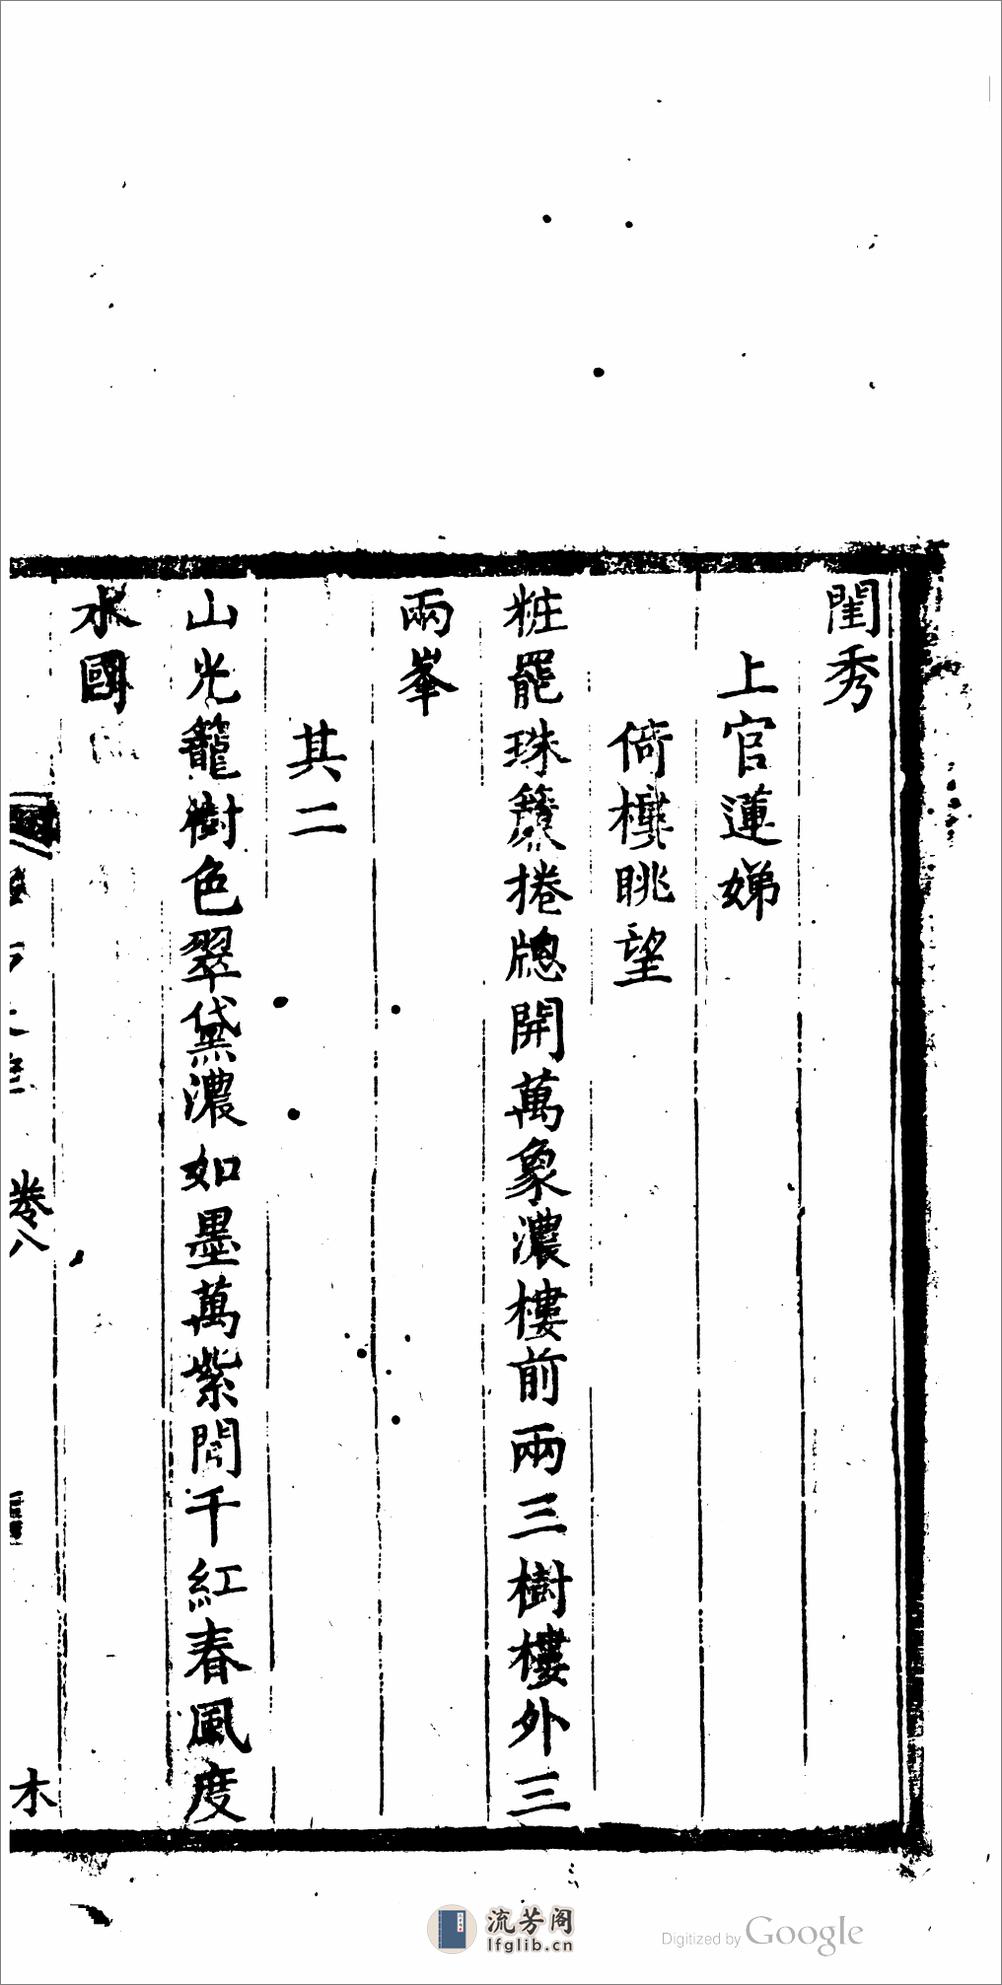 閨秀
上官蓮娣
倚樓眺望
粧罷珠簾捲牕開萬象濃樓前兩三樹樓外三
兩峯
其二
山光籠樹色翠黛濃如墨萬紫閒千紅春風度
水國
卷八
木
流芳阁
lfglib.cn
Digitized by Google